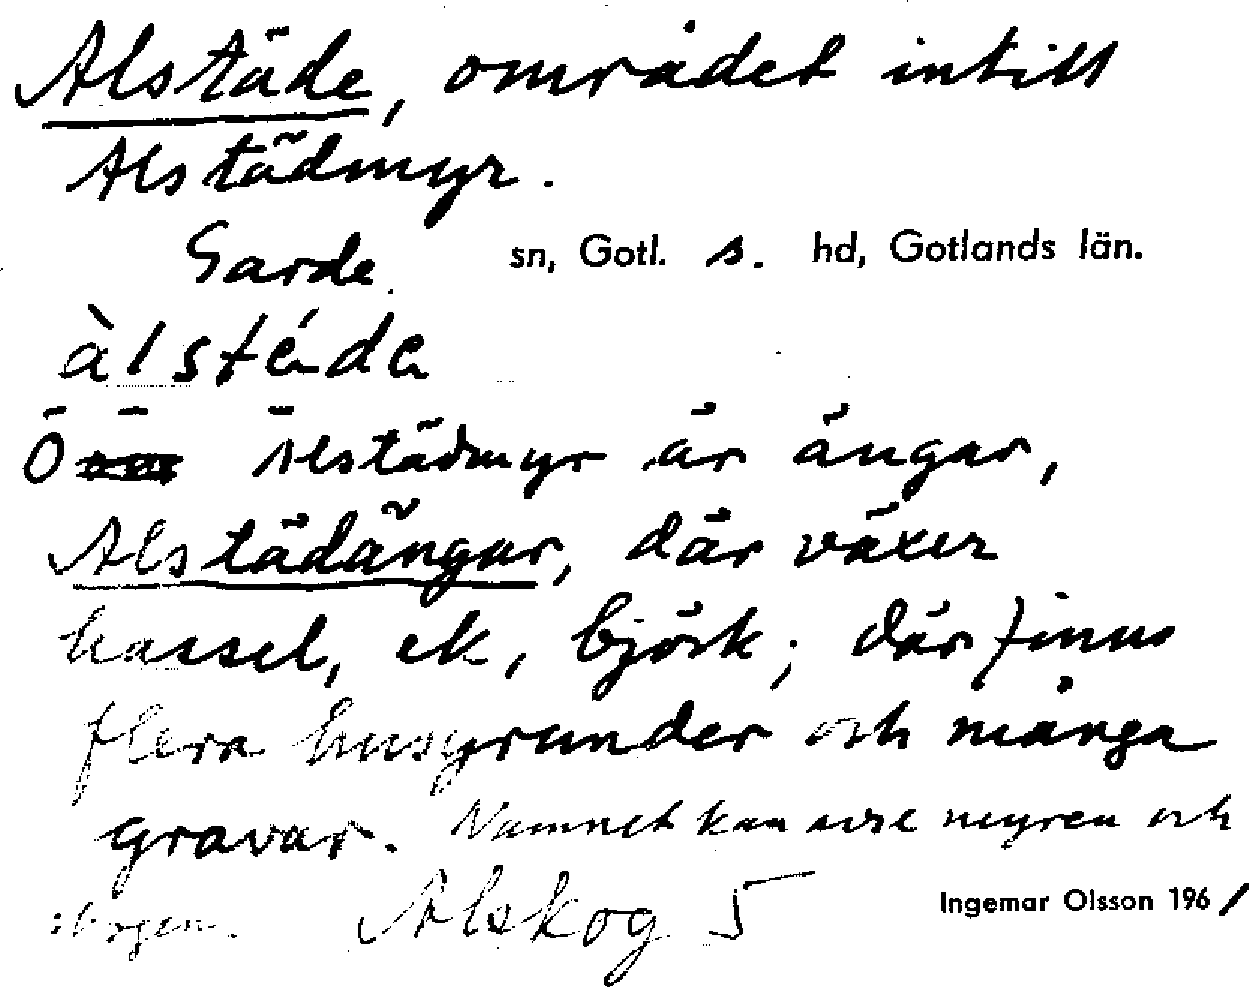 Alstäde, området intill
Alstädmyr.
Garde sn, Gotl. s. hd, Gotlands län.
àlstéde
Ö Alstädmyr är ängar,
Alstädängar, där växer
hassel, ek, björk; där finns
flera husgrunder och många
gravar. Namnet kan avse myren och
skogen. Alskog 5 Ingemar Olsson 1961